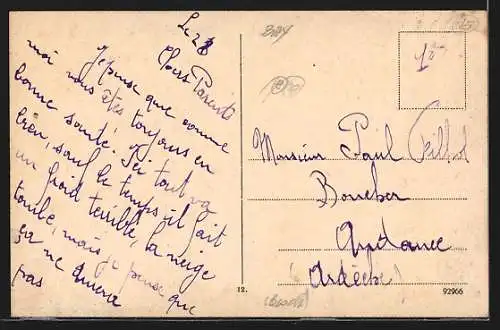 Le 28
Chers Parents
Je pense que comme
moi vous êtes toujours en
bonne santé. Ici tout va
bien, sauf le temps, il fait
un froid terrible, la neige
tombe, mais je pense que
ça ne durera
pas
Monsieur Paul
Boucher
Andance
(Ardèche)
12.
92966